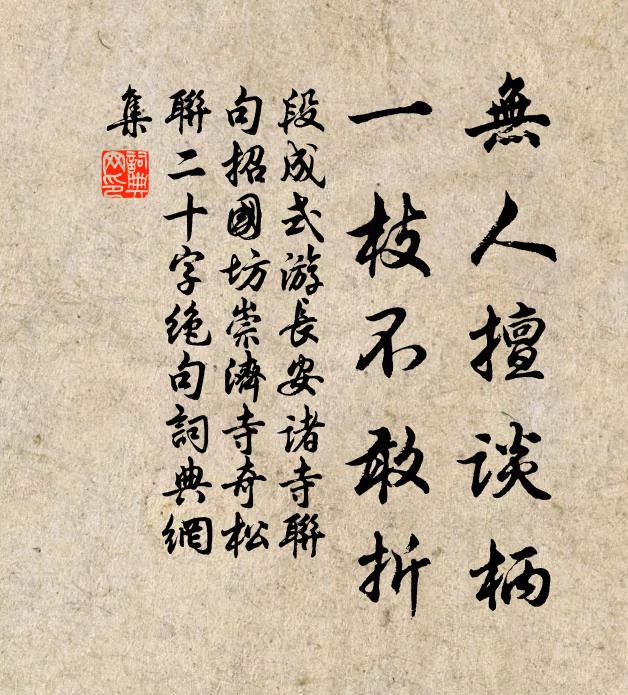 無人擅談柄
一枝不敢折
段成式游長安諸寺聯
句招國坊崇濟寺奇松
聯二十字絶句詞典網
集
詞典
网印